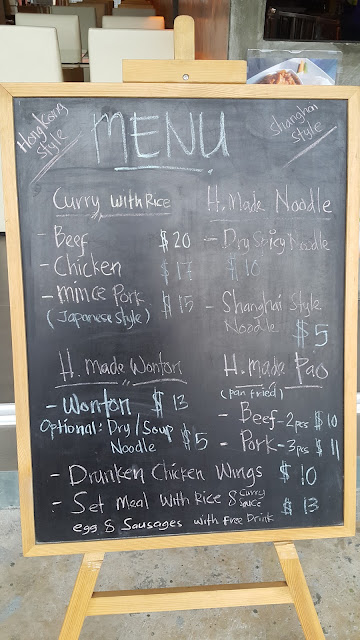 HongKong
Style
MENU
Shanghai
Style
Curry With Rice
- Beef $20
- Chicken $17
- mince Pork $15
(Japanese Style)
H. Made Noodle
- Dry Spicy Noodle
$10
- Shanghai Style
Noodle
$5
H. made Wonton
- Wonton $13
Optional: Dry / Soup
Noodle $5
H. made Pao
(pan fried)
- Beef - 2pcs $10
- Pork - 3pcs $11
- Drunken Chicken Wings $10
- Set Meal With Rice & Curry Sauce $13
egg & Sausages with Free Drink